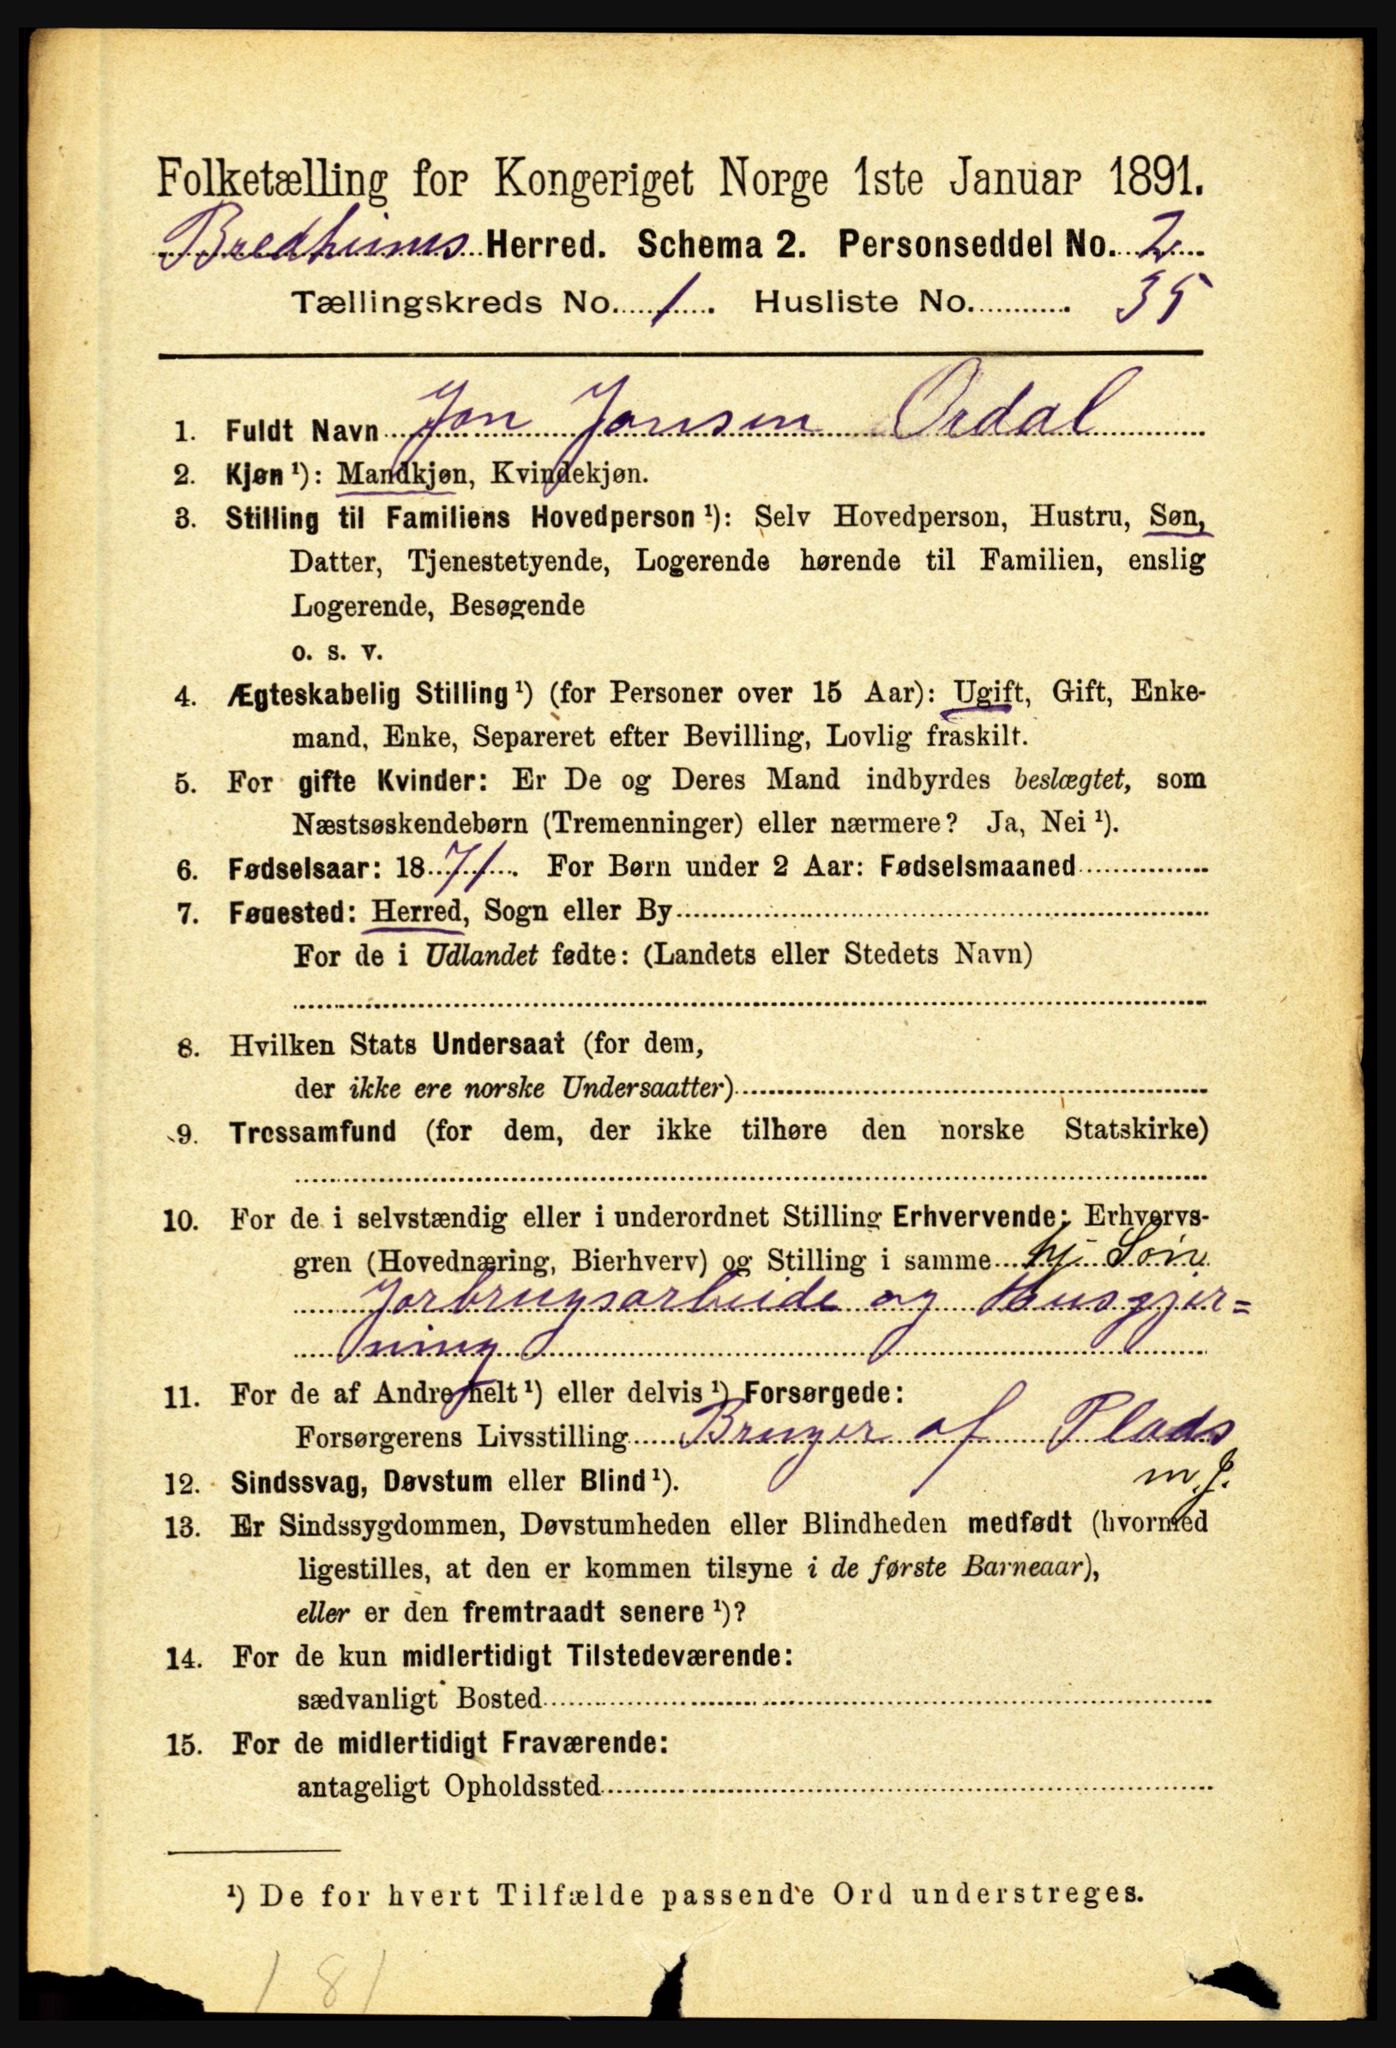 Folketælling for Kongeriget Norge 1ste Januar 1891.
Bredheims Herred. Schema 2. Personseddel No. 2
Tællingskreds No. 1. Husliste No. 35
1. Fuldt Navn Jon Jonsen Ordal
2. Kjøn ¹): Mandkjøn, Kvindekjøn.
3. Stilling til Familiens Hovedperson ¹): Selv Hovedperson, Hustru, Søn,
Datter, Tjenestetyende, Logerende hørende til Familien, enslig
Logerende, Besøgende
o. s. v.
4. Ægteskabelig Stilling ¹) (for Personer over 15 Aar): Ugift, Gift, Enke-
mand, Enke, Separeret efter Bevilling, Lovlig fraskilt.
5. For gifte Kvinder: Er De og Deres Mand indbyrdes beslægtet, som
Næstsøskendebørn (Tremenninger) eller nærmere? Ja, Nei ¹).
6. Fødselsaar: 1871. For Børn under 2 Aar: Fødselsmaaned
7. Fødested: Herred, Sogn eller By
For de i Udlandet fødte: (Landets eller Stedets Navn)
8. Hvilken Stats Undersaat (for dem,
der ikke ere norske Undersaatter)
9. Trossamfund (for dem, der ikke tilhøre den norske Statskirke)
10. For de i selvstændig eller i underordnet Stilling Erhvervende: Erhvervs-
gren (Hovednæring, Bierhverv) og Stilling i samme hj. Søn
Jorbrugsarbeide og Husgjer=
ning
11. For de af Andre helt ¹) eller delvis ¹) Forsørgede:
Forsørgerens Livsstilling Bruger af Plads
m. J.
12. Sindssvag, Døvstum eller Blind ¹).
13. Er Sindssygdommen, Døvstumheden eller Blindheden medfødt (hvormed
ligestilles, at den er kommen tilsyne i de første Barneaar),
eller er den fremtraadt senere ¹)?
14. For de kun midlertidigt Tilstedeværende:
sædvanligt Bosted
15. For de midlertidigt Fraværende:
antageligt Opholdssted
¹) De for hvert Tilfælde passende Ord understreges.
181